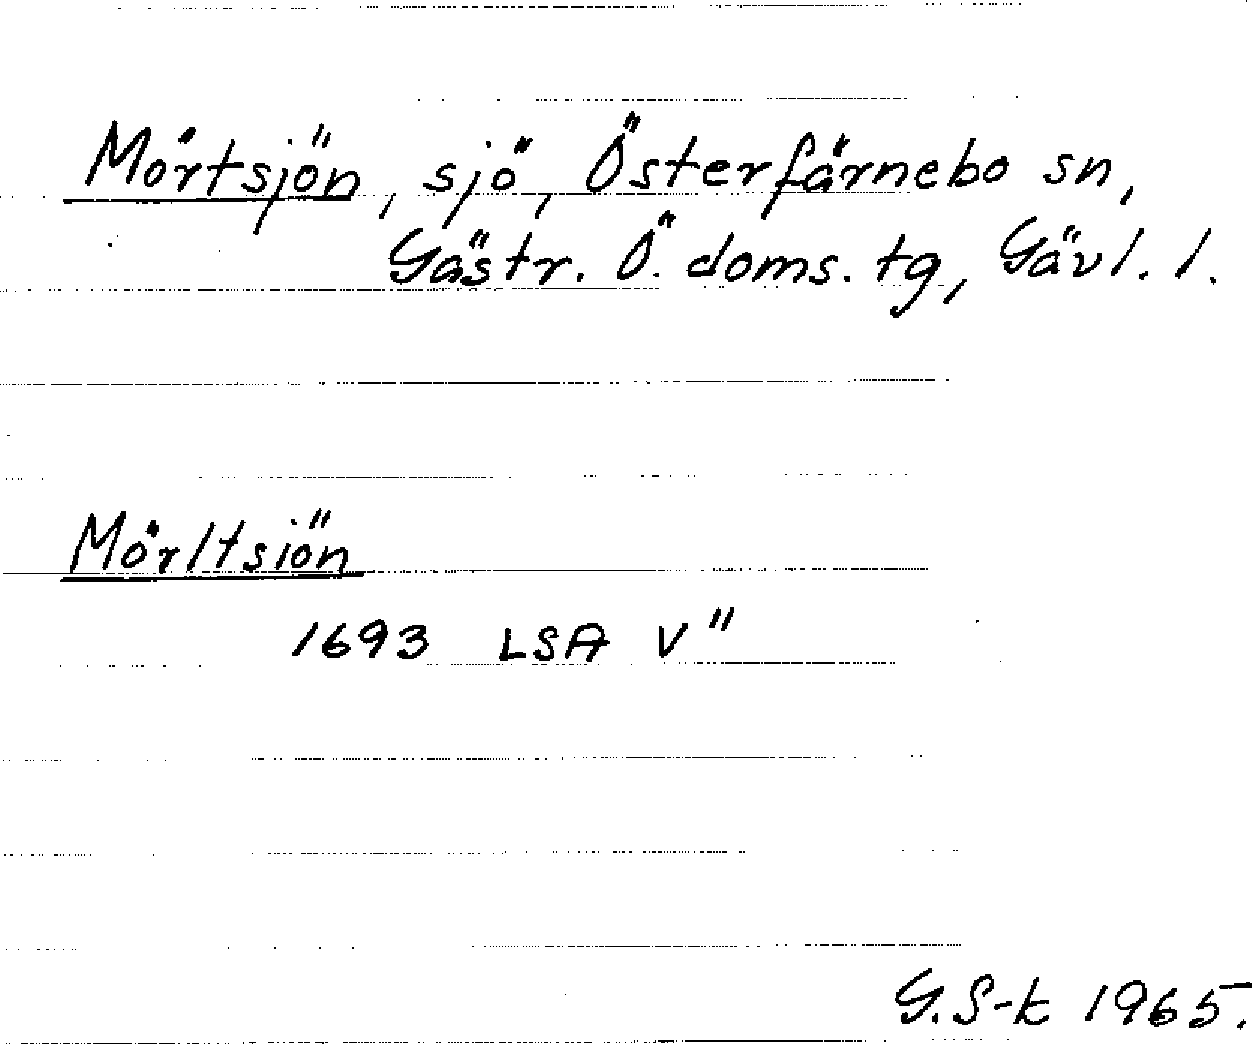 Mörtsjön, sjö, Österfärnebo sn,
Gästr. Ö. doms. tg, Gävl. l.
Mörltsiön
1693 LSA V"
G.S-k 1965.